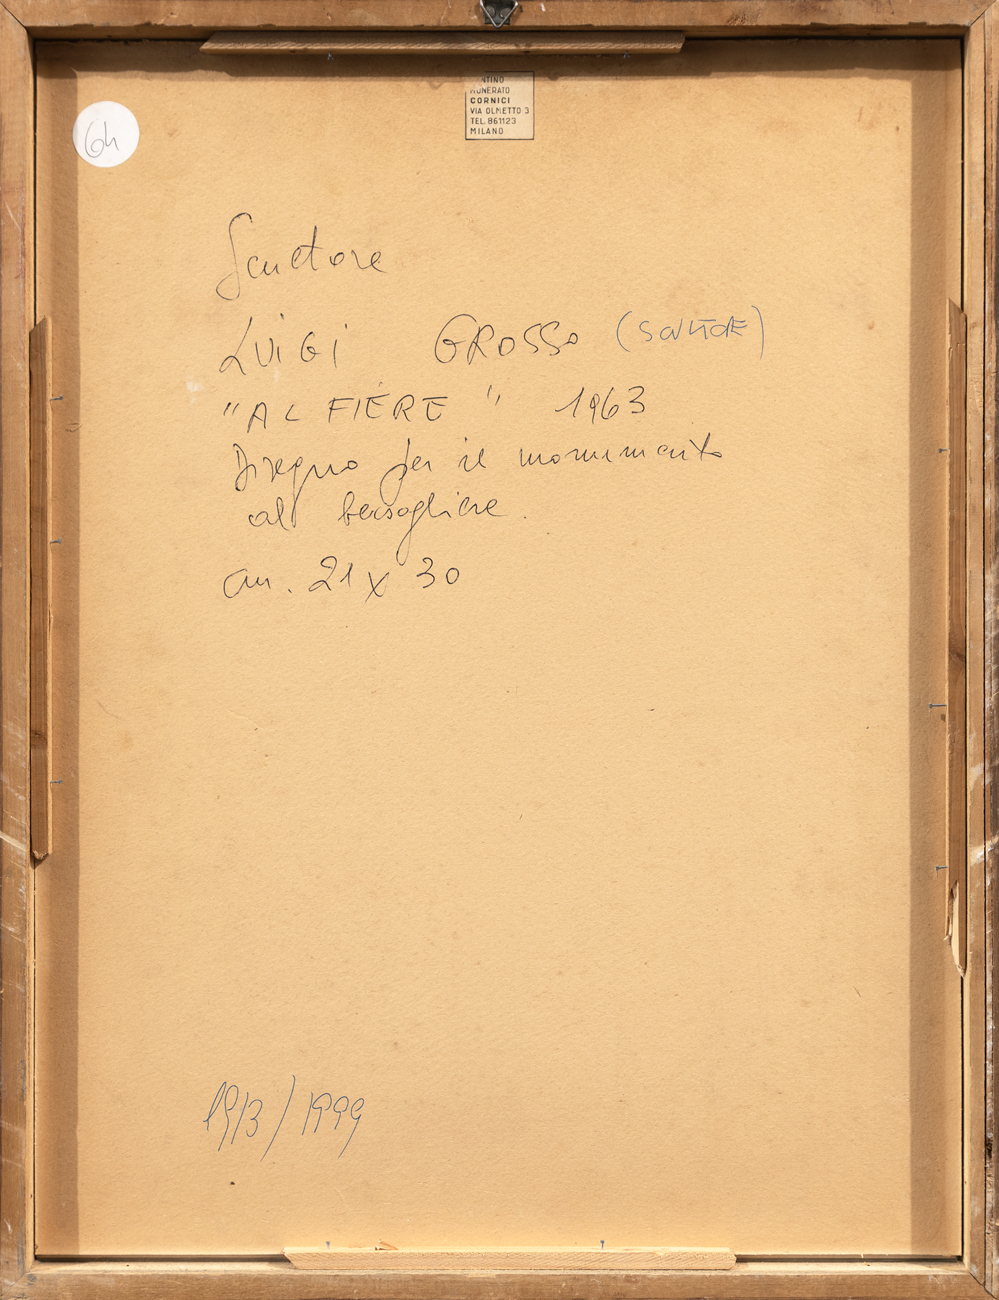 CORNICI
VIA OLMETTO 3
TEL. 861123
MILANO
64
Scultore
LUIGI GROSSO (SCULTORE)
"ALFIERE" 1963
Disegno per il monumento
al bersagliere.
cm. 21 x 30
1913/1999